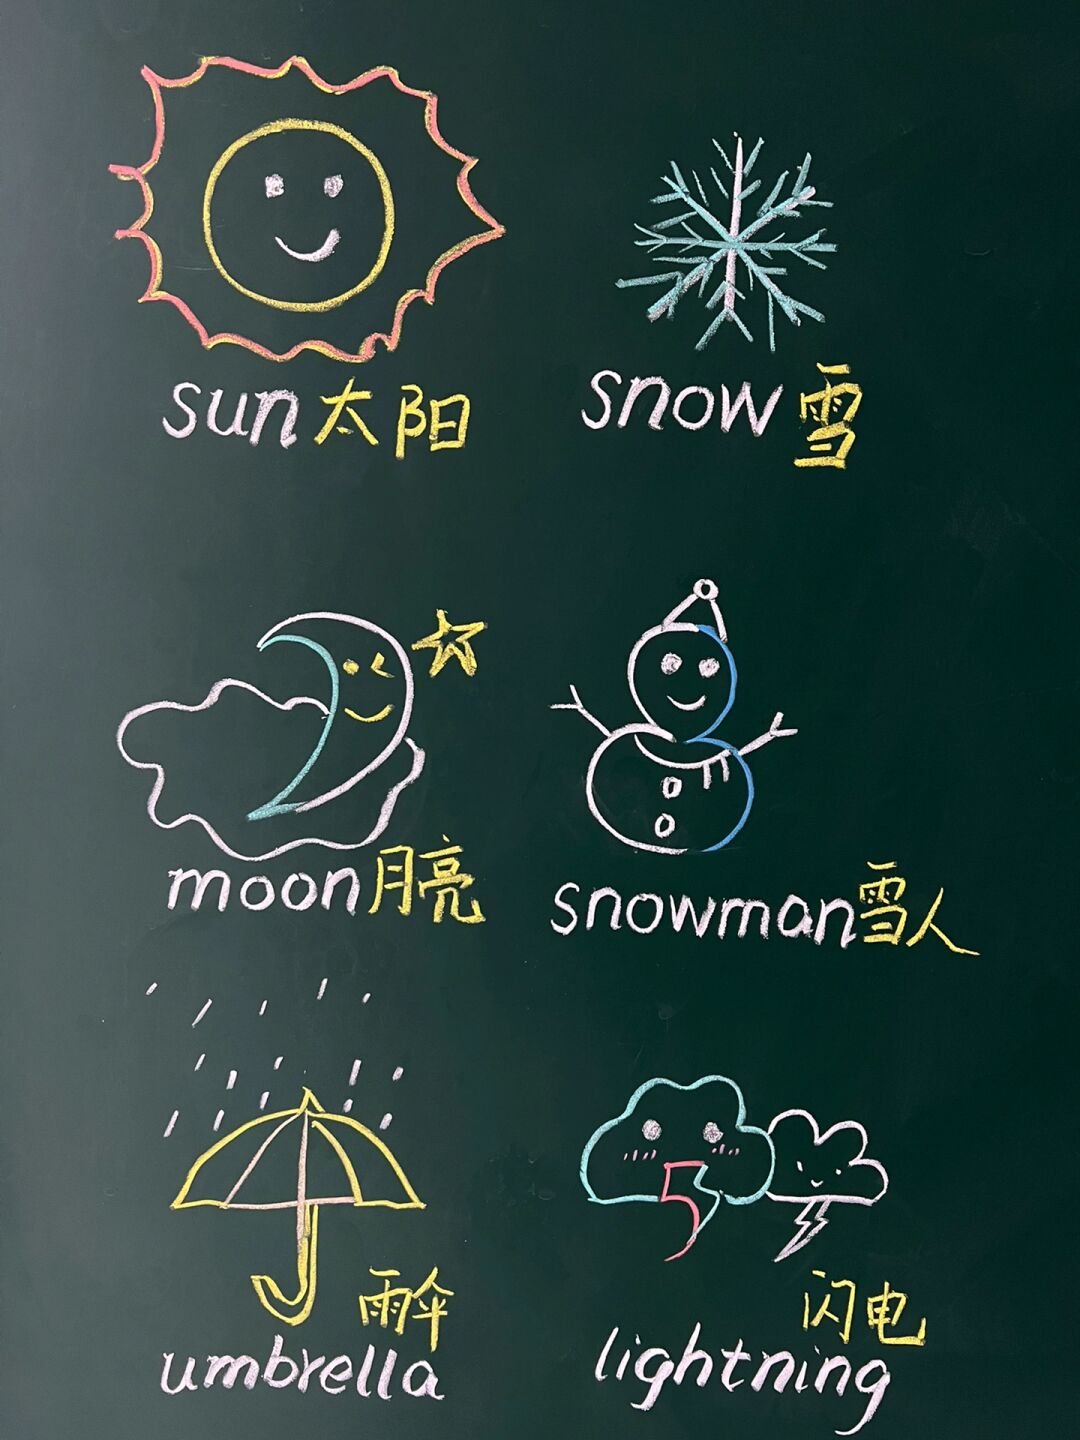 sun太阳
snow雪
moon月亮
snowman雪人
雨伞
umbrella
闪电
lightning